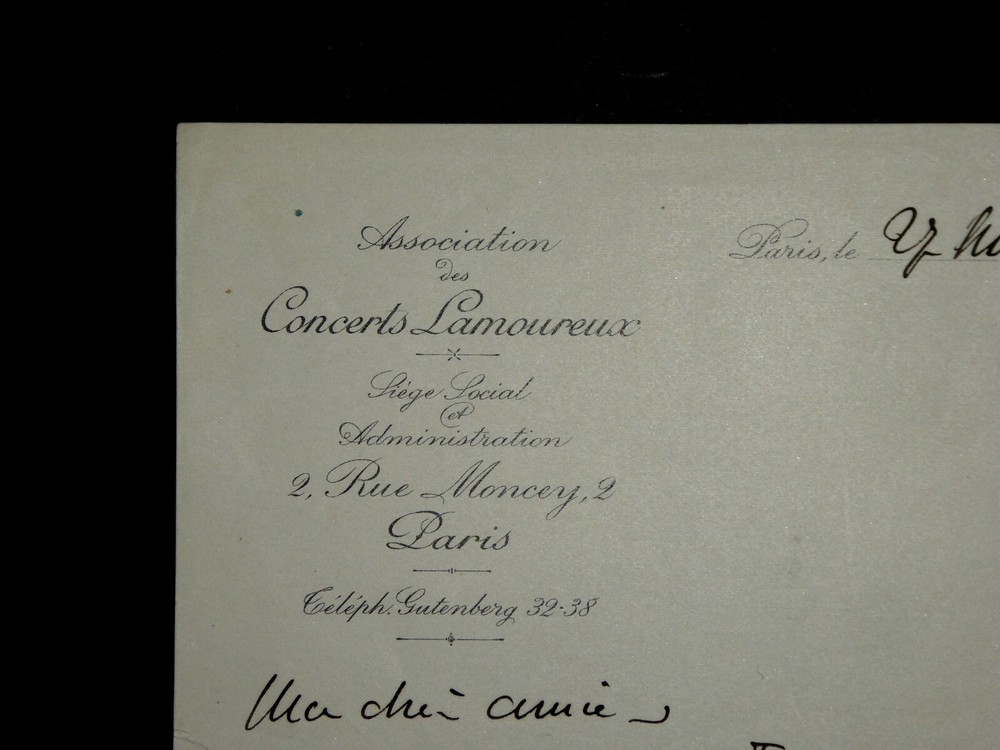 Association
des
Concerts Lamoureux
Siége Social
et
Administration
2, Rue Moncey, 2
Paris
Téléph. Gutenberg 32-38
Paris, le 27
Ma chère amie